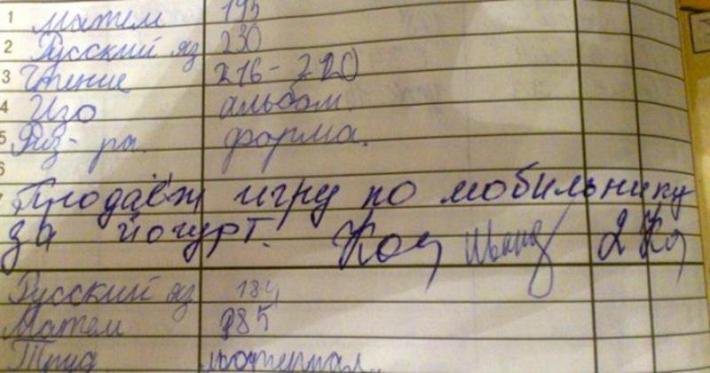 1 Матем 195
2 Русский яз 230
3 Чтение 216-220
4 Изо альбом
5 Физ-ра. форма.
6
Продаёж игру по мобильнику
за йогурт.
Русский яз 184
Матем 985
Труд